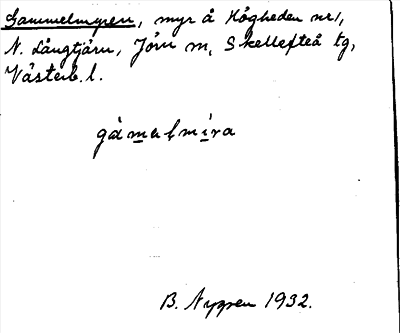 Gammelmyren, myr å Högheden nr 1,
N. Långtjärn, Jörn sn, Skellefteå tg,
Västerb. l.
gámalmíra
B. Nygren 1932.